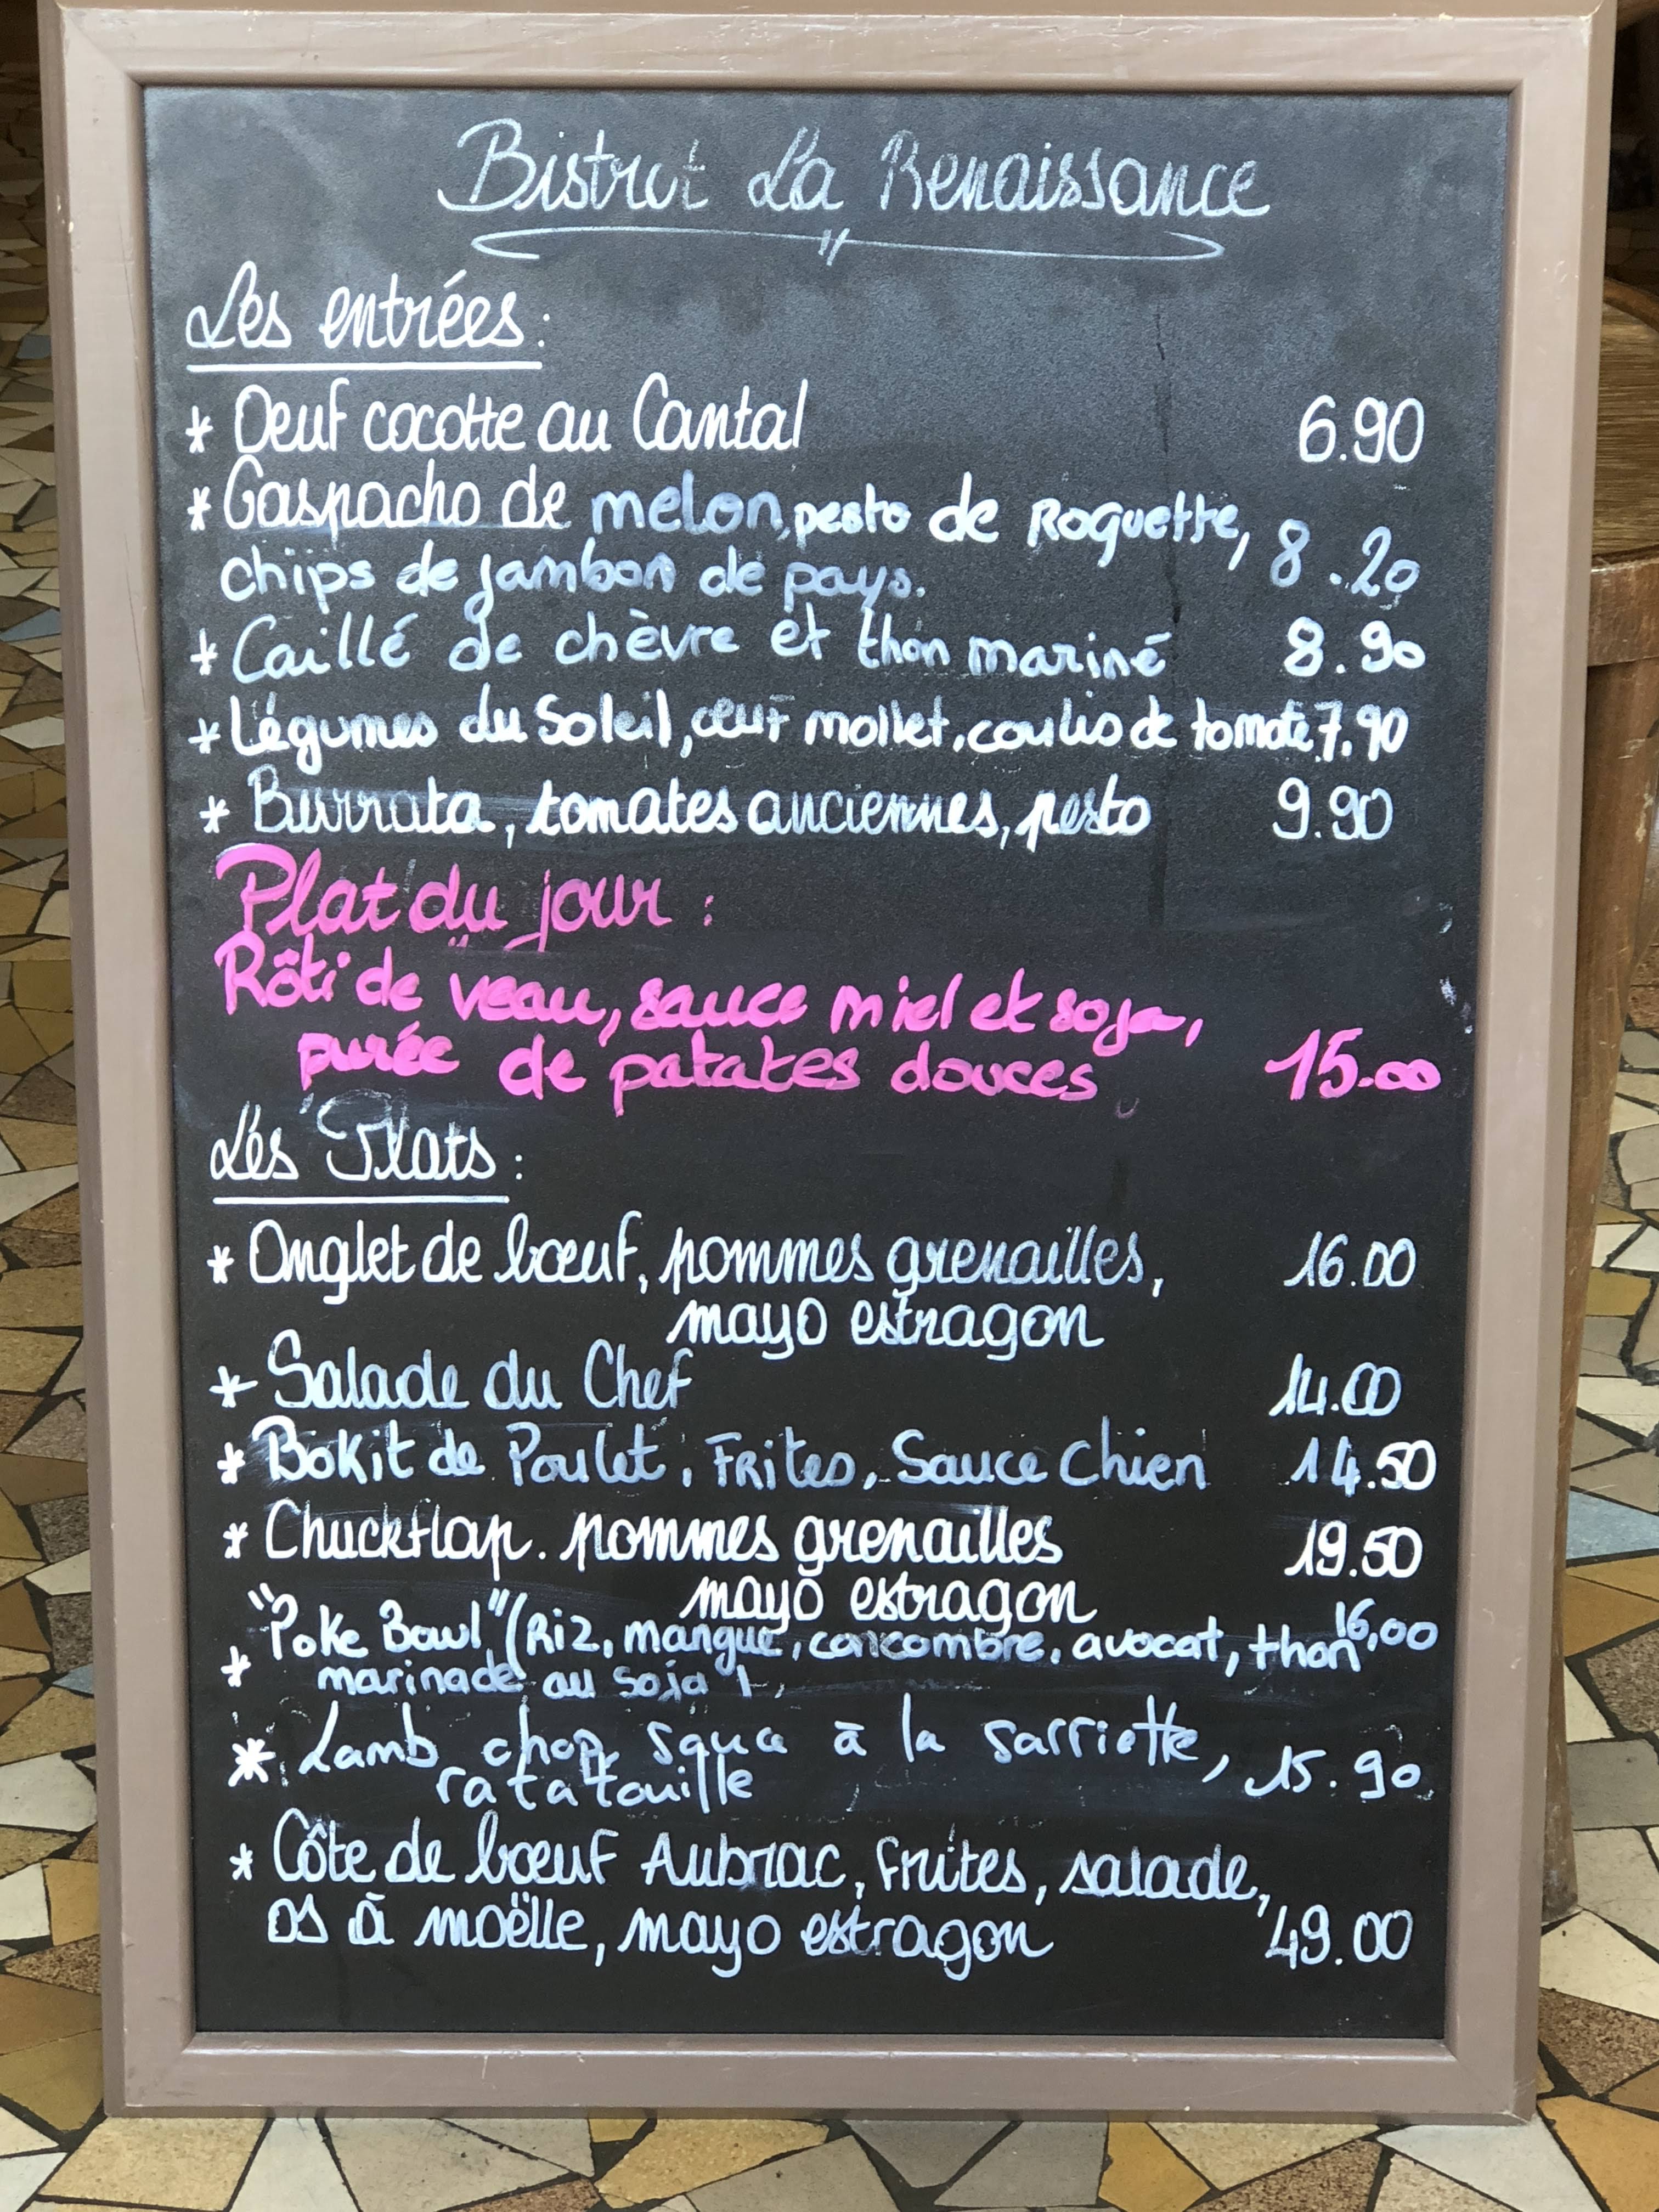 Bistrot La Renaissance
Les entrées :
* Oeuf cocotte au Cantal 6.90
* Gaspacho de melon, pesto de Roquette, 8.20
chips de jambon de pays.
* Caillé de chèvre et thon mariné 8.90
* Légumes du Soleil, œuf mollet, coulis de tomate 7.90
* Burrata, tomates anciennes, pesto 9.90
Plat du jour :
Rôti de veau, sauce miel et soja,
purée de patates douces 15.00
Les Plats :
* Onglet de bœuf, pommes grenailles, 16.00
mayo estragon
* Salade du Chef 14.00
* Bokit de Poulet, Frites, Sauce Chien 14.50
* Chuckflap. pommes grenailles 19.50
mayo estragon
* "Poke Bowl" (Riz, mangue, concombre, avocat, thon 16,00
marinade au soja)
* Lamb chop à la sarriette, 15.90
ratatouille
* Côte de bœuf Aubrac, frites, salade,
os à moëlle, mayo estragon 49.00